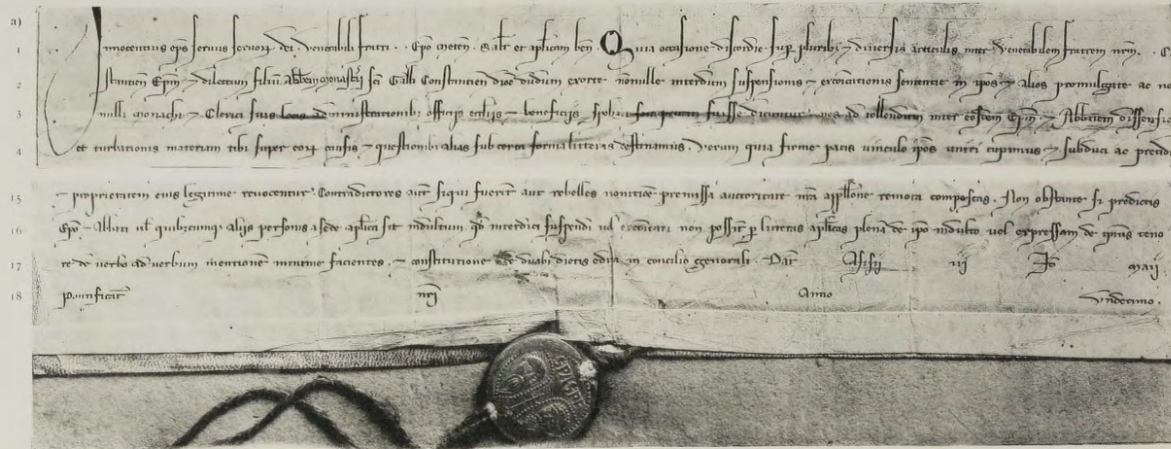 a)
1 Innocentius eps servus servoꝝ dei . Venerabili fratri . . Epo Meten̄ . Salt et aplicam ben̄ . Quia occasione discordie sup pluribꝫ ⁊ diversis articulis inter venerabilem fratrem nrm . .
2 stantien̄ Epm ⁊ dilectum filiū Abbem monasterij sci Galli Constantien̄ dioc̄ dudum exorte nonnulle interdum suspensionis ⁊ excōicationis sententie in ipos ⁊ alios promulgate ac no
3 nulli monachi ⁊ Clerici suis locis administrationibꝫ officijs ecclijs ⁊ beneficijs fuisse dicuntur nos ad tollendum inter eosdem Epm ⁊ Abbatem dissensio
4 et turbationis materiam tibi super eoꝝ causis ⁊ questionibꝫ alias sub certa forma litteras destinamus . Verum quia firme pacis vinculo ipos uniri cupimus ⁊ subduci ac precidi
15 ⁊ proprietatem eius legitime revocentur . Contradictores aut̄ siqui fuerīt aut rebelles premissa auctoritate nra appellōne remota compescas . Non obstante si predictis
16 Epo ⁊ Abbati ul quibuscumqꝫ alijs personis a sede aplica sit indultum qd̄ interdici suspendi ul excōicari non possīt p litteras aplicas plenā de ipo indulto vel expressam de ipius teno
17 re de verbo ad verbum mentionē minime facientes . ⁊ constitutione de duabꝫ dietis edita in concilio generali . Dat̄ Asisij iij maij
18 Pontificat̄ nri Anno Undecimo .
SPASPE